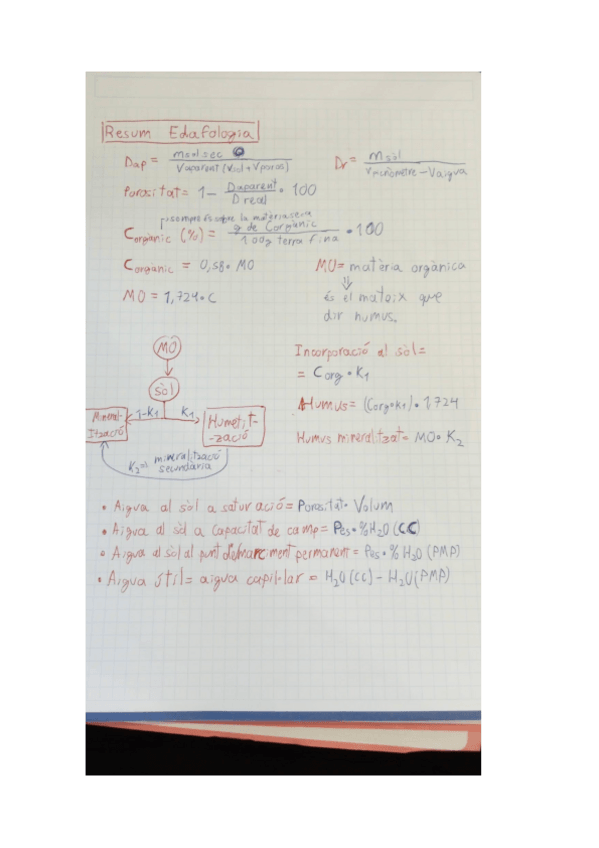 Resum Edafologia
Dap = msòl sec / Vaparent (Vsòl + Vporos)
Dr = msòl / Vpicnòmetre - Vaigua
Porositat = 1 - Daparent / Dreal • 100
sempre és sobre la matèria seca
Corgànic (%) = g de Corgànic / 100g terra fina • 100
Corgànic = 0,58 • MO
MO = matèria orgànica
⇓
és el mateix que
dir humus.
MO = 1,724 • C
MO
sòl
1-K1 K1
Mineral-
ització
Humetit-
-zació
K2 ⇒ mineralització
secundària
Incorporació al sòl =
= Corg • K1
Humus = (Corg • K1) • 1,724
Humus mineralitzat = MO • K2
• Aigua al sòl a saturació = Porositat • Volum
• Aigua al sòl a capacitat de camp = Pes • %H2O (CC)
• Aigua al sòl al punt de marciment permanent = Pes • % H2O (PMP)
• Aigua útil = aigua capil·lar = H2O (CC) - H2O (PMP)